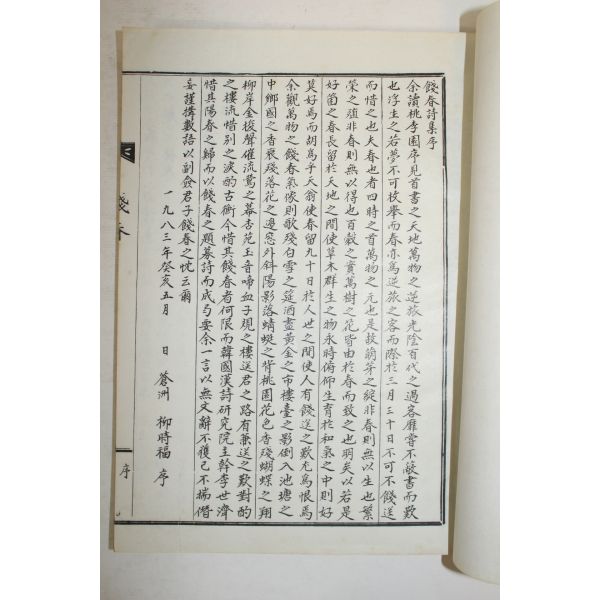 餞春詩集序
余讀桃李園序見首書之天地萬物之逆旅光陰百代之過客靡嘗不敵書而歎
也浮生之若夢不可枚擧而春亦爲逆旅之客而際於三月三十日不可不餞送
而惜之也夫春也者四時之首萬物之元也是故萌芽之綻非春則無以生也繁
榮之殖非春則無以得也百穀之實萬樹之花皆由於春而致之也明矣以若是
好箇之春長留於天地之間使草木群生之物永時俯仰生育於和氣之中則好
莫好焉而胡爲乎天翁使春留九十日於人世之間使人有餞送之歎尤爲恨焉
余觀萬物之餞春氣像則歌殘白雪之筵酒盡黃金之市樓臺之影倒入池塘之
中鄕國之香衰殘落花之邊窓外斜陽影落蜻蜓之背桃園花色香殘蝴蝶之翔
柳岸金梭聲催流鶯之幕杏苑玉音啼血子規之樓送君之路有兼送之歎對酌
之樓流惜別之淚酌古衡今惜其餞春者何限而韓國漢詩硏究院主幹李世濟
惜其陽春之歸而以餞春之題募詩而成弓要余一言以無文辭不獲已不揣僭
妄謹搆數語以副僉君子餞春之忱云爾
一九八三年癸亥五月 日 蒼洲 柳時福 序
序